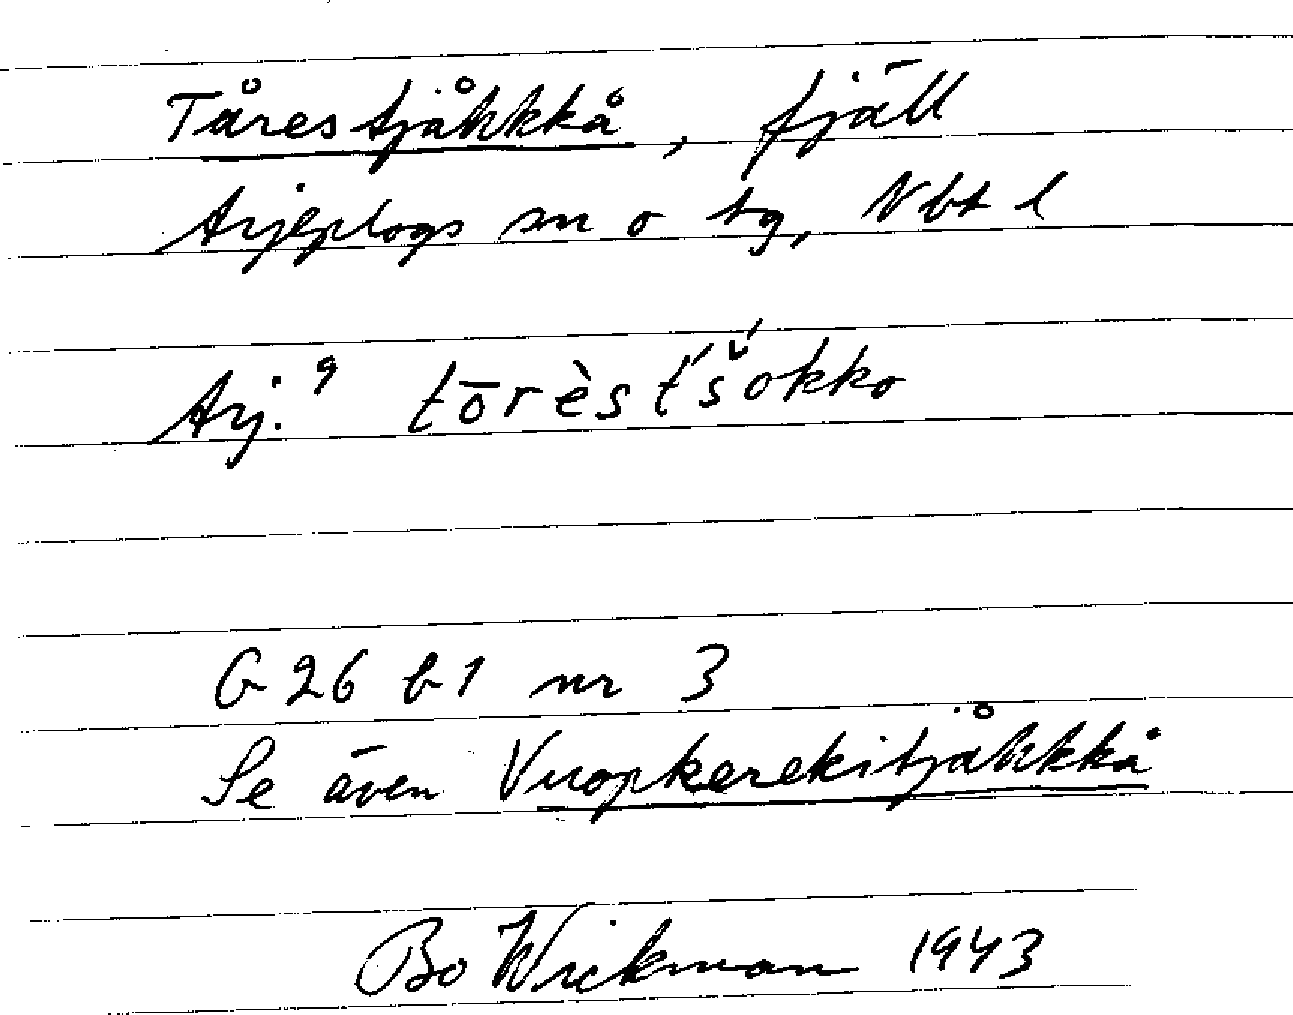 Tårestjåkkkå, fjäll
Arjeplogs sn o tg, Nbt l
Arj. 9 tōrèst́š́okko
G 26 b1 nr 3
Se även Vuopkerekitjåkkkå
Bo Wickman 1943